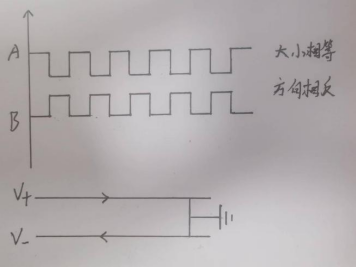 A
大小相等
方向相反
B
V+
V-